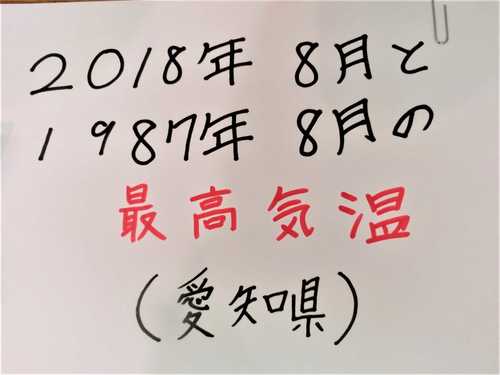 2018年 8月と
1987年 8月の
最高気温
(愛知県)